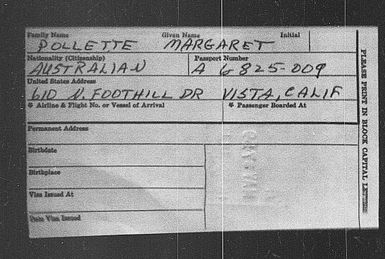 Family Name Given Name Initial
POLLETTE MARGARET
Nationality (Citizenship) Passport Number
AUSTRALIAN A G 825-009
United States Address
610 N. FOOTHILL DR VISTA, CALIF
* Airline & Flight No. or Vessel of Arrival * Passenger Boarded At
Permanent Address
Birthdate
Birthplace
Visa Issued At
Date Visa Issued
PLEASE PRINT IN BLOCK CAPITAL LETTERS